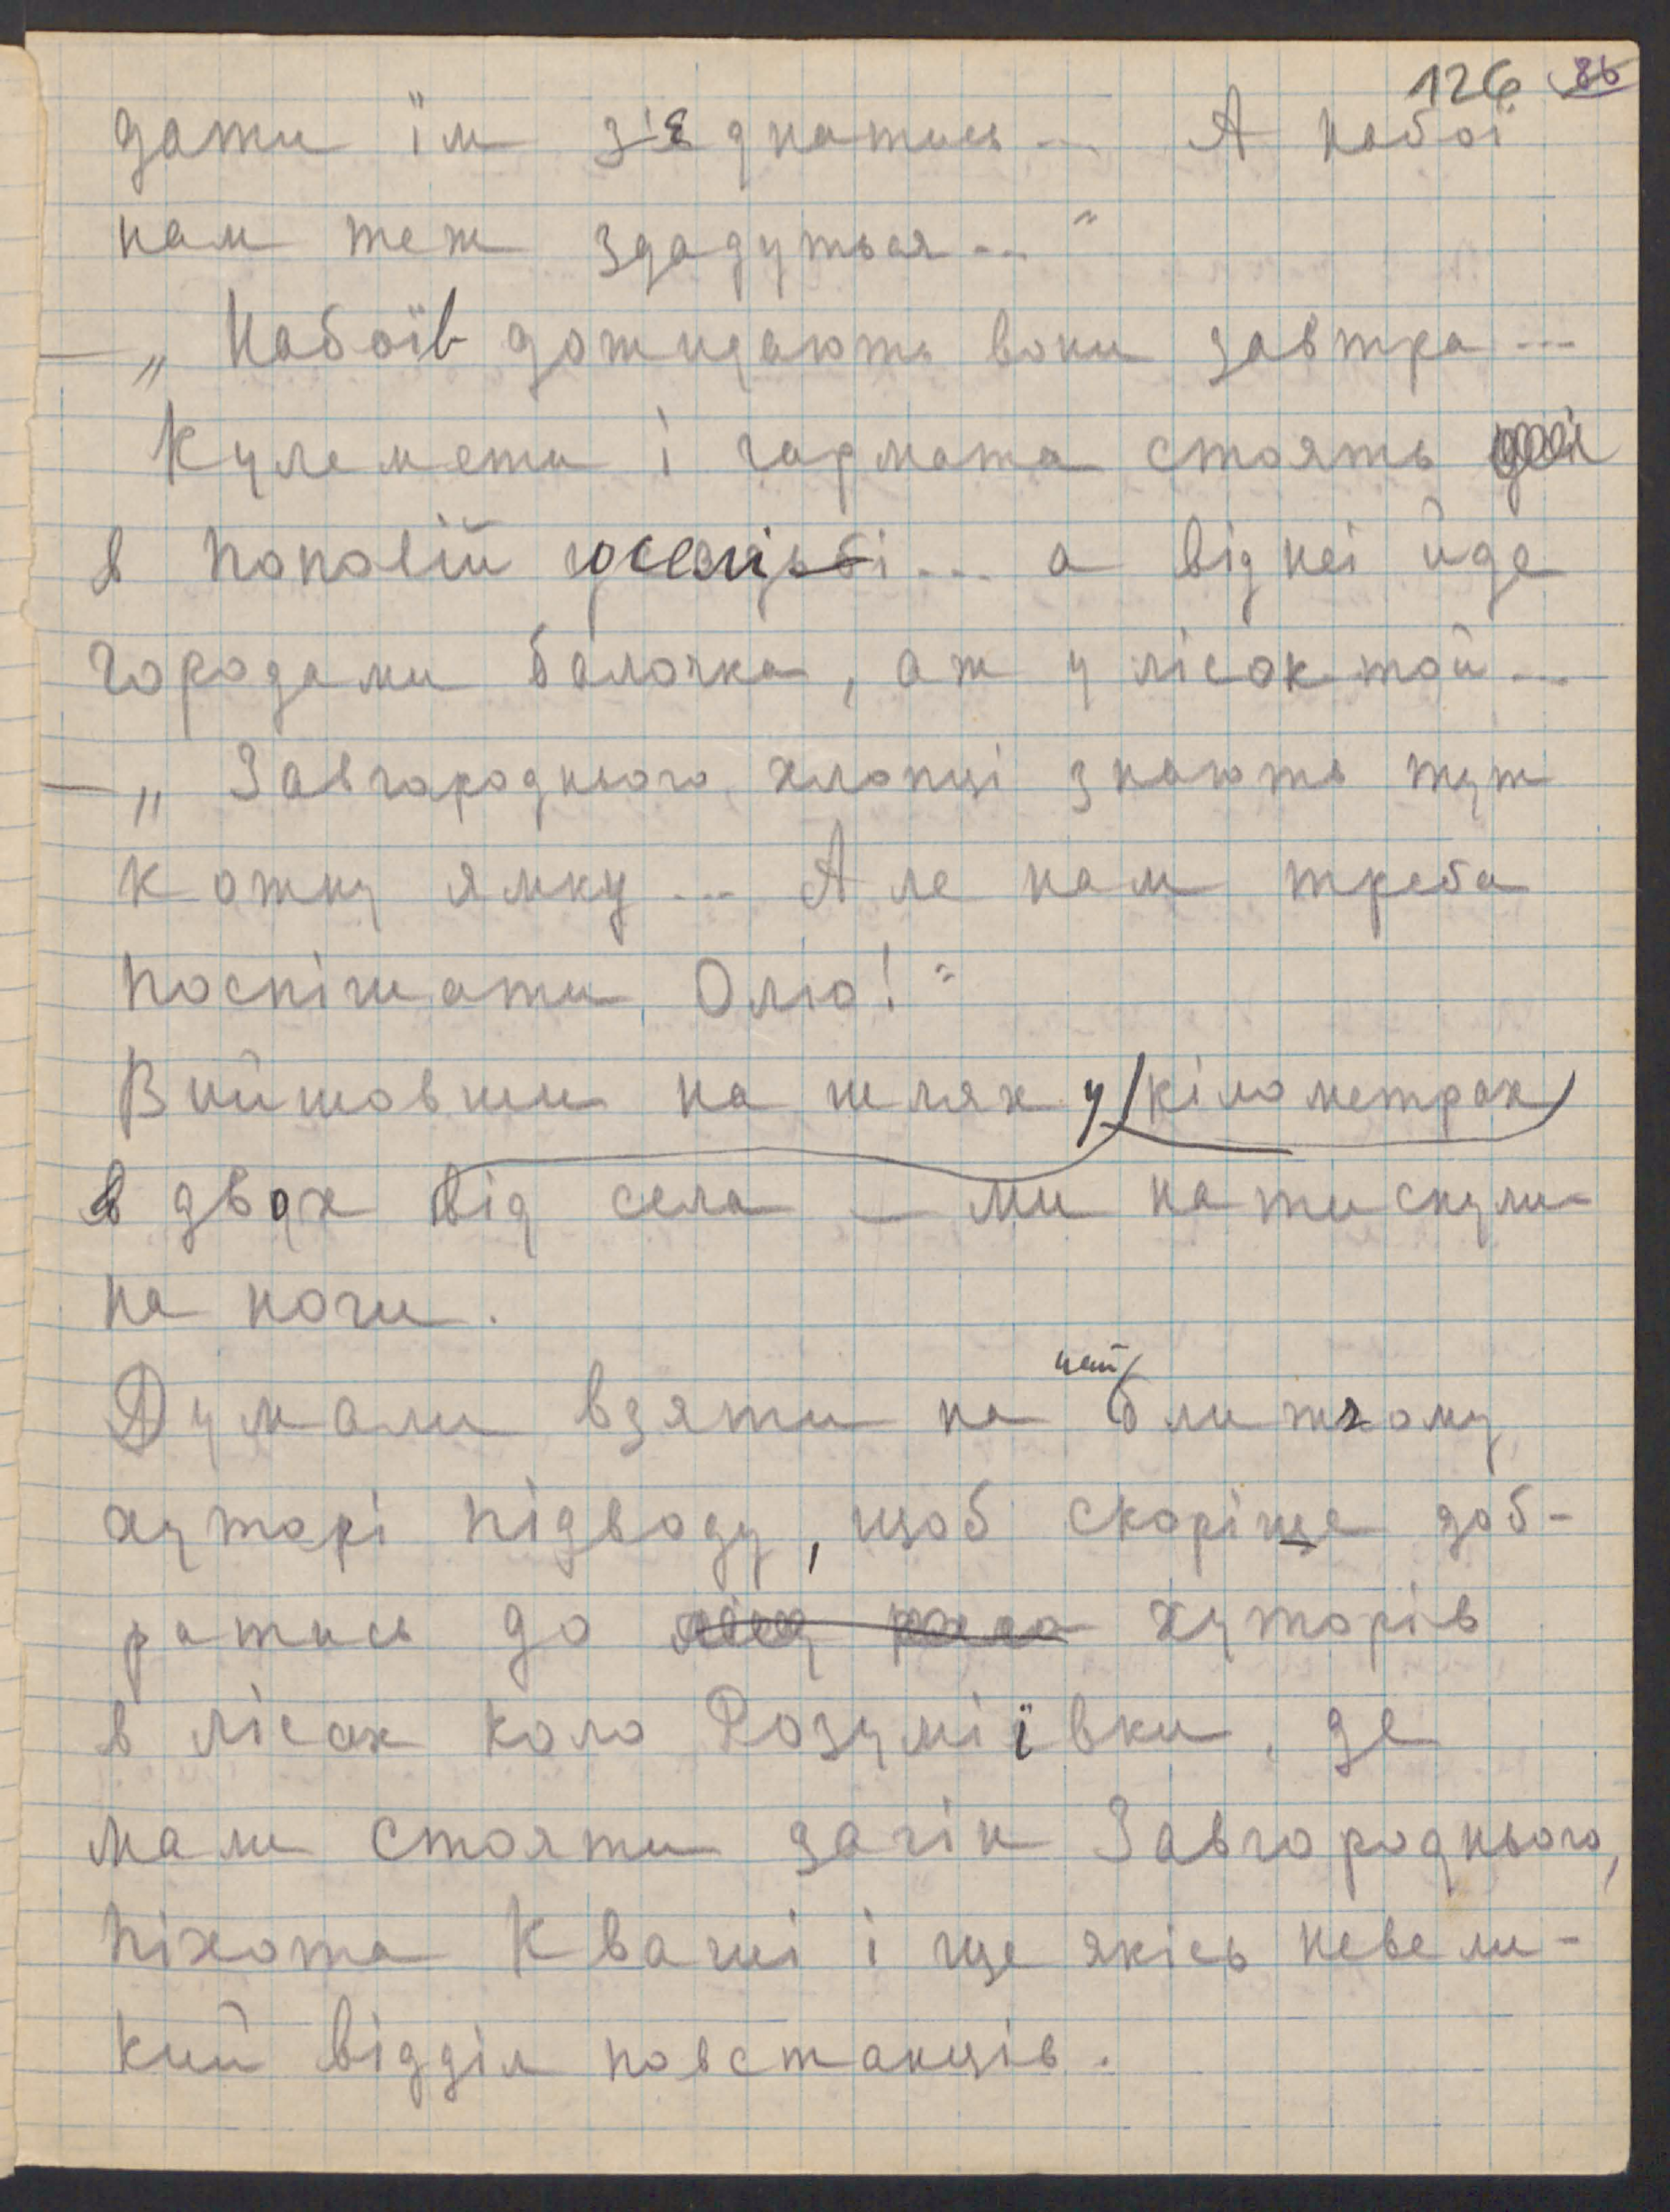 126 86
дати їм з'єднатись... А набої
нам теж здадуться..."
— „Набоїв дожидають вони завтра...
Кулемети і гармата стоять
в поповій оселі... а від неї йде
городами балочка, аж у лісок той...
— „Завгороднього хлопці знають тут
кожну ямку... Але нам треба
поспішати Олю!"
Вийшовши на шлях у кілометрах
в двох від села — ми натиснули
на ноги.
Думали взяти на найближчому
хуторі підводу, щоб скоріще доб-
ратись до хуторів
в лісах коло Розуміївки, де
мали стояти загін Завгороднього,
піхота Кваші і ще якісь невели-
кий відділ повстанців.